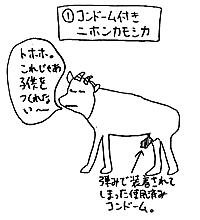 ①コンドーム付き
ニホンカモシカ
トホホ。
これじゃあ
子供を
つくれない
～
弾みで装着されて
しまった使用済み
コンドーム。